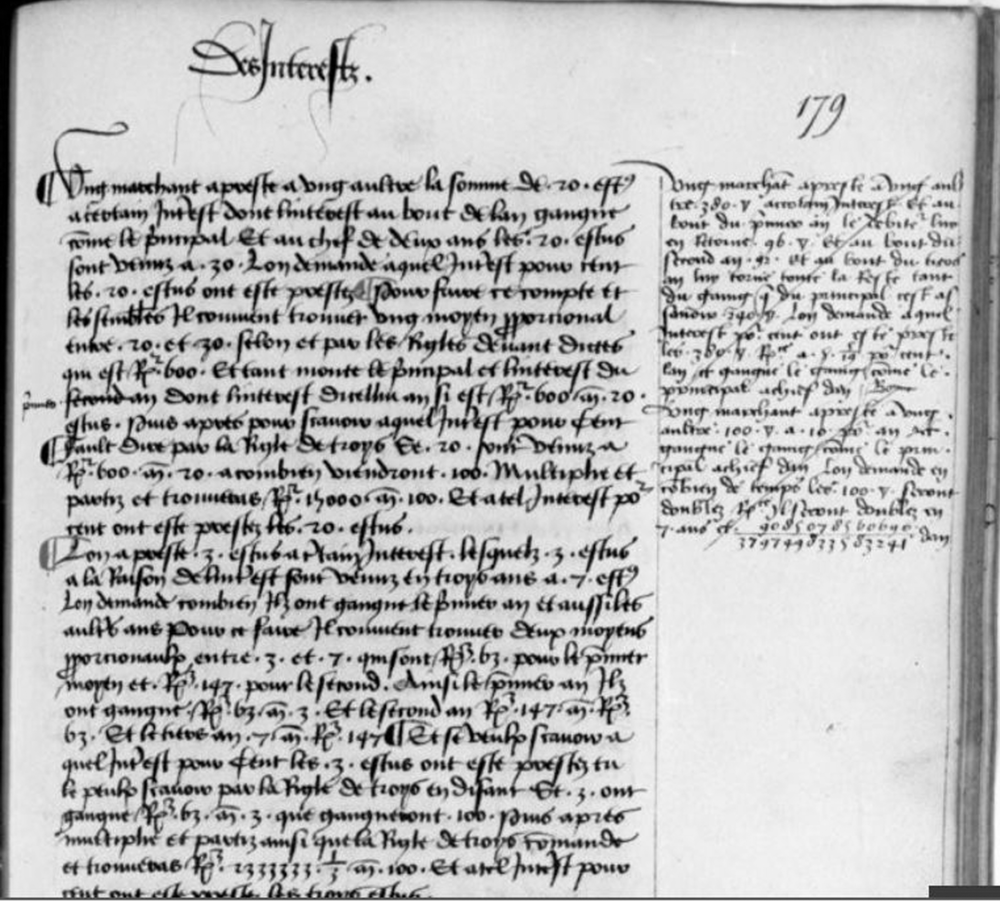 Des Interestz.
179
Ung marchant a preste a ung aultre la somme de .20. estus
a certain Interest dont linterest au bout de lan gangne
come le principal Et au chief de deux ans les .20. estus
sont venuz a .30. Lon demande a quel Interest pour cent
les .20. estus ont este prestez Pour faire ce compte et
les semblables Il convient trouver ung moyen pporcional
entre .20. et .30. selon et par les Rigles devant dictes
qui est R² 600. Et tant monte le principal et linterest du
second an dont linterest dicellui an si est R² 600 m̄ 20.
estus. Puis apres pour scavoir a quel Interest pour Cent
Fault dire par la Rigle de troys Se .20. sont venuz a
R² 600 m̄ 20. a combien viendront .100. Multiplie et
partiz et trouveras R² 15000 m̄ 100. Et a tel Interest po²
cent ont este prestez les .20. estus.
Lon a preste .3. estus a certain Interest. lesquelz .3. estus
a la Raison de linterest sont venuz en troys ans a .7. estus
Lon demande combien Ilz ont gangne le primier an et aussi les
aultres ans Pour ce faire Il convient trouver deux moyens
pporcionaulx entre .3. et .7. qui sont R³ 63. pour le primier
moyen et R³ 147. pour le second. Ainsi le primier an Ilz
ont gangne R³ 63. m̄ 3. Et le second an R³ 147. m̄ R³
63. Et le tiers an .7. m̄ R³ 147 Et se veulx scavoir a
quel Interest pour Cent les .3. estus ont este prestez tu
le peulx scavoir par la Rigle de troys en disant Se .3. ont
gangne R³ 63. m̄ 3. que gangneront .100. Puis apres
multiplie et partiz ainsi que la Rigle de troys comande
et trouveras R³ 2333333 1/3 m̄ 100. Et a tel Interest pour
cent ont este prestez les troys estus.
primier
Ung marchāt a preste a ung aul
tre .380. a certain Interest Et au
bout du primier an le debiteur luy
en retorne .96. Et au bout du
second an .92. Et au bout du tiers
an luy torne toute la Reste tant
du gaing q̄ du principal cest as
savoir Lon demande a quel
Interest po² cent ont este prestez
les .380. po² cent
lan et gangne le gaing come le
principal a chief dan
Ung marchant a preste a ung
aultre .100. a .10. po² an et
gangne le gaing come le prin
cipal a chief dan Lon demande en
cōbien de temps les .100. seront
doublez Ilz seront doublez en
7. ans et 908507856090 dan
3797498335832 41